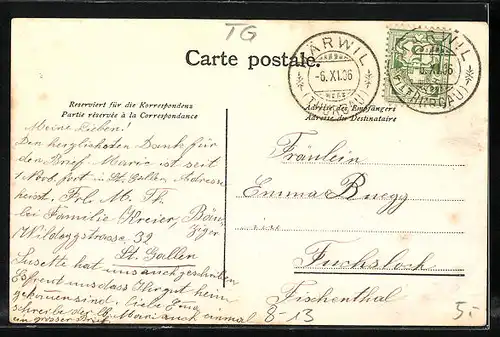 TG
Carte postale.
MÄRWIL
-6. XI. 06
(THURGAU)
MÄRWIL
-6. XI. 06
(THURGAU)
Reserviert für die Korrespondenz
Partie réservée à la Correspondance
Adresse des Empfängers
Adresse du Destinataire
Meine Lieben!
Den herzlichsten Dank für
den Brief. Marie ist seit
1 Nov. fort in St. Gallen Adresse
heisst. Frl. M. Th.
bei Familie Kreier, Bänziger
Wildeggstrasse 32
St. Gallen
Susette hat uns auch geschrieben
Es freut uns dass Ihr gut heim
gekommen sind. Liebe Emma
schreibe der Marie auch einmal
ein grosser Brief
Fräulein
Emma Ruegg
in
Fuchsloch
Fischenthal
8-13
5.-